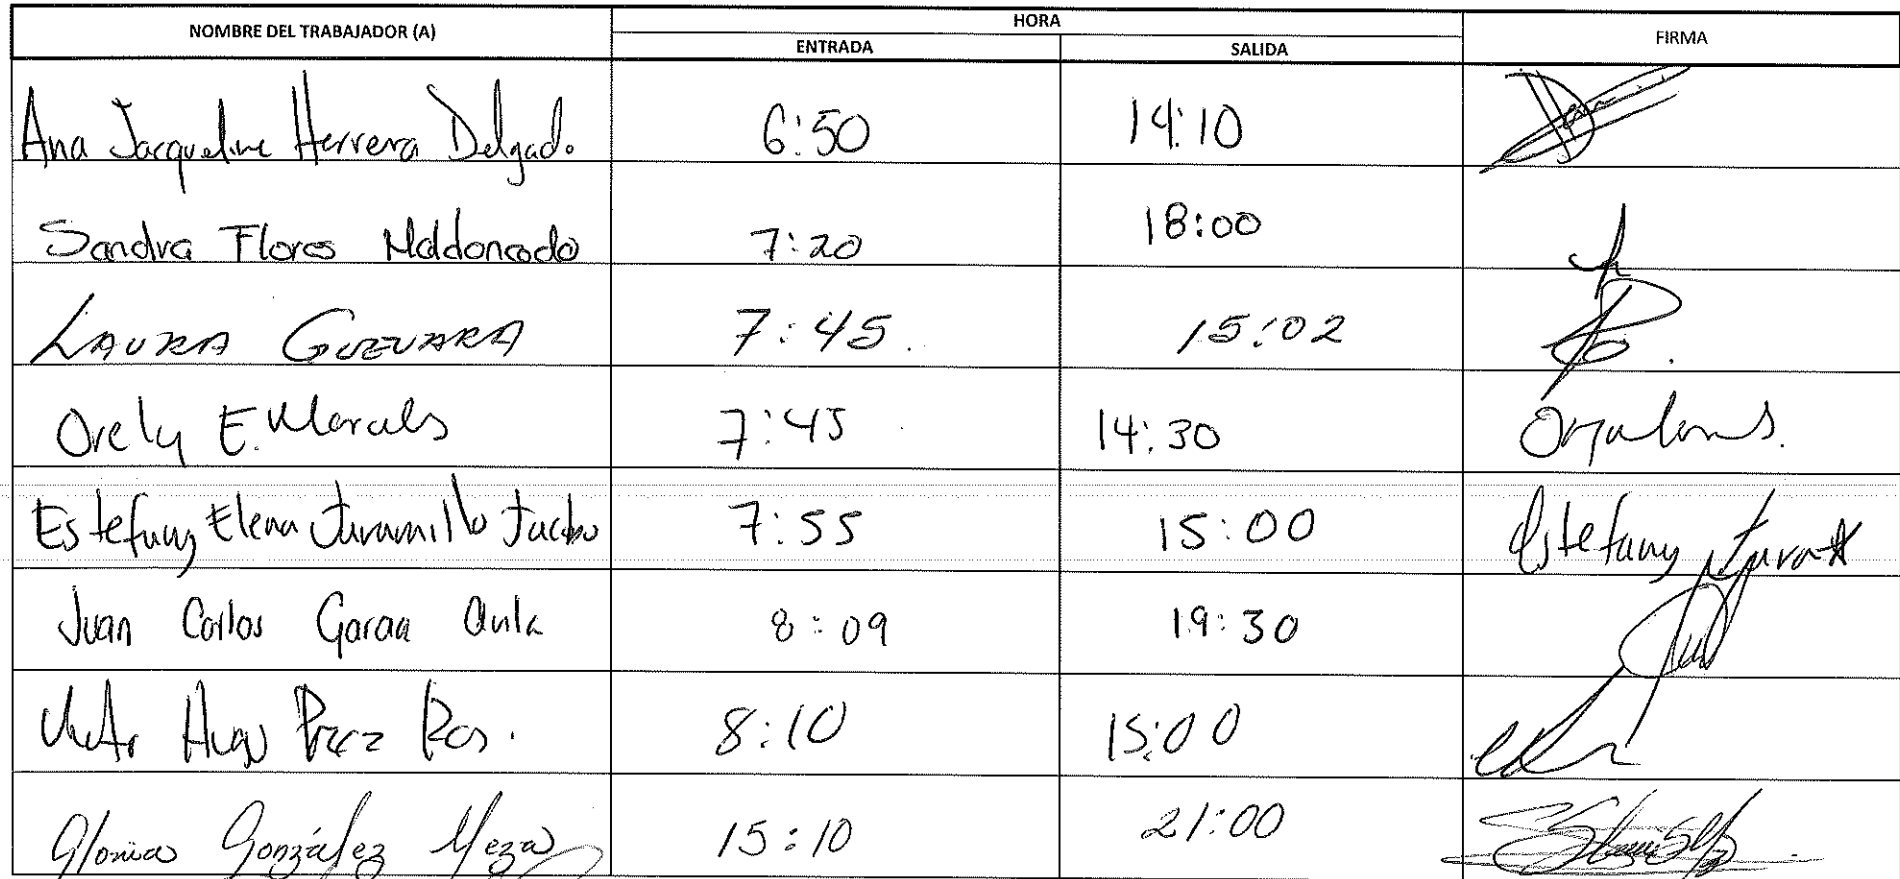 NOMBRE DEL TRABAJADOR (A) HORA FIRMA
ENTRADA SALIDA
Ana Jacqueline Herrera Delgado. 6:50 14:10
Sandra Flores Maldonado 7:20 18:00
LAURA GUEVARA 7:45. 15:02
Orely E. Morales 7:45 14:30
Estefany Elena Jaramillo 7:55 15:00 Estefany
Juan Carlos Garcia 8:09 19:30
Hugo Perez 8:10 15:00
Gloria González Meza 15:10 21:00